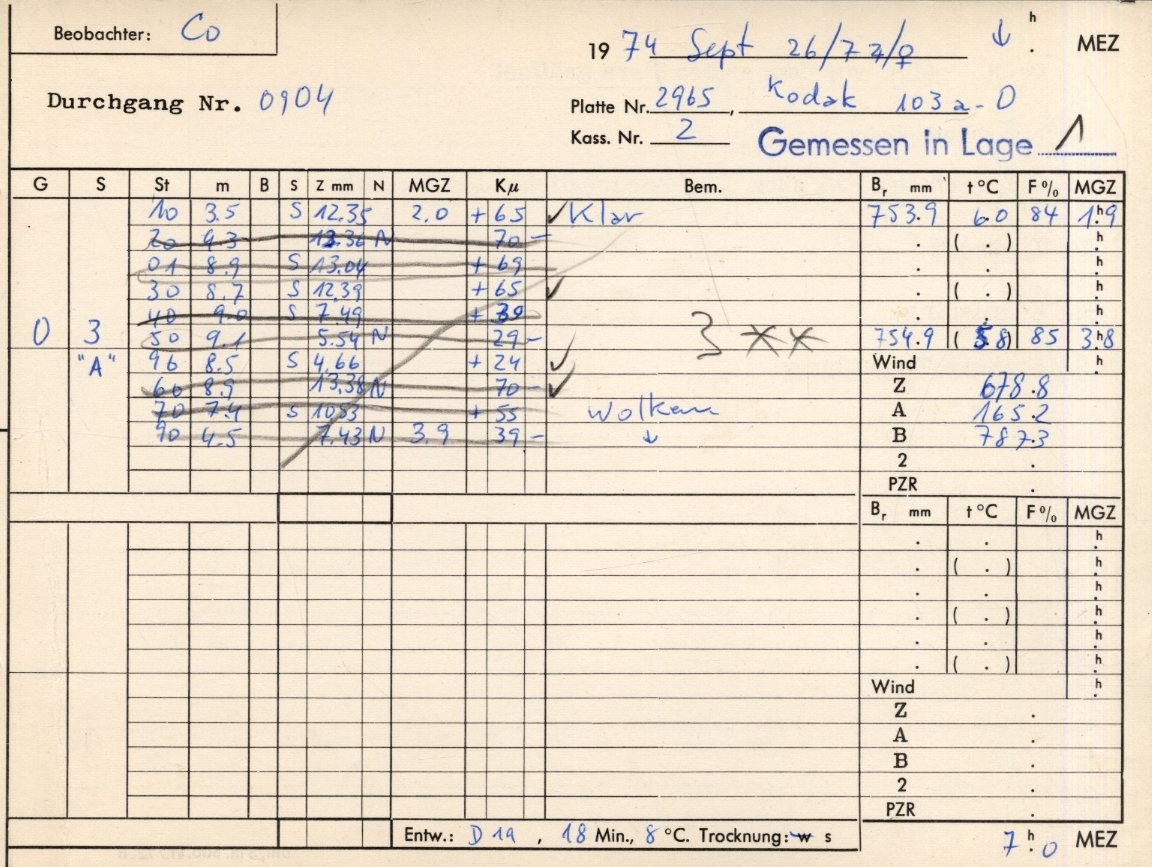 Beobachter: Co
1974 Sept 26/27 ♃/♀ ↓ h . MEZ
Durchgang Nr. 0904
Platte Nr. 2965, Kodak 103a-O
Kass. Nr. 2
Gemessen in Lage 1
G S St m B S Z mm N MGZ Kμ Bem. Br mm t°C F% MGZ
10 3.5 S 12.35 2.0 +65 ✓ Klar 753.9 6.0 84 1h9
20 9.3 13.36 N 70 − . ( . ) h
01 8.9 S 13.04 +69 . . h
30 8.7 S 12.39 +65 ✓ . ( . ) h
40 9.0 S 7.49 +39 . . h
0 3 50 9.1 5.54 N 29 − 3 ** 754.9 (5.8) 85 3h8
"A" 96 8.5 S 4.66 +24 ✓ Wind h
60 8.9 13.38 N 70 − ✓ Z 678.8
70 7.4 S 10.53 +55 Wolken A 165.2
90 4.5 7.43 N 3.9 39 − ↓ B 787.3
2 .
PZR .
Br mm t°C F% MGZ
. . h
. ( . ) h
. . h
. ( . ) h
. . h
. ( . ) h
Wind h
Z .
A .
B .
2 .
PZR .
Entw.: D 19, 18 Min., 8 °C. Trocknung: w s
7h.0 MEZ